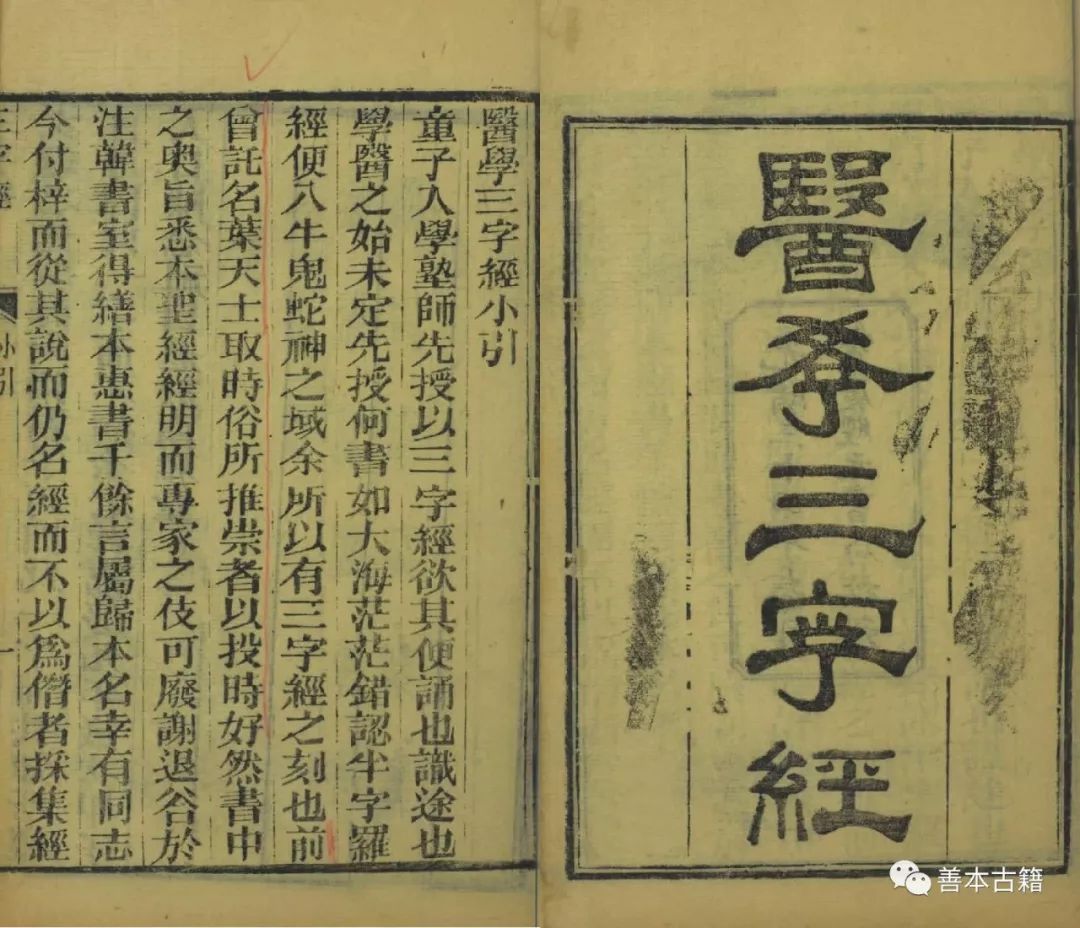 醫學三字經
醫學三字經小引
童子入學塾師先授以三字經欲其便誦也識途也
學醫之始未定先授何書如大海茫茫錯認半字羅
經便入牛鬼蛇神之域余所以有三字經之刻也前
曾託名葉天士取時俗所推崇者以投時好然書中
之奥旨悉本聖經經明而專家之伎可廢謝退谷於
注韓書室得繕本惠書千餘言屬歸本名幸有同志
今付梓而從其說而仍名經而不以爲僭者採集經
三字經
小引
一
善本古籍